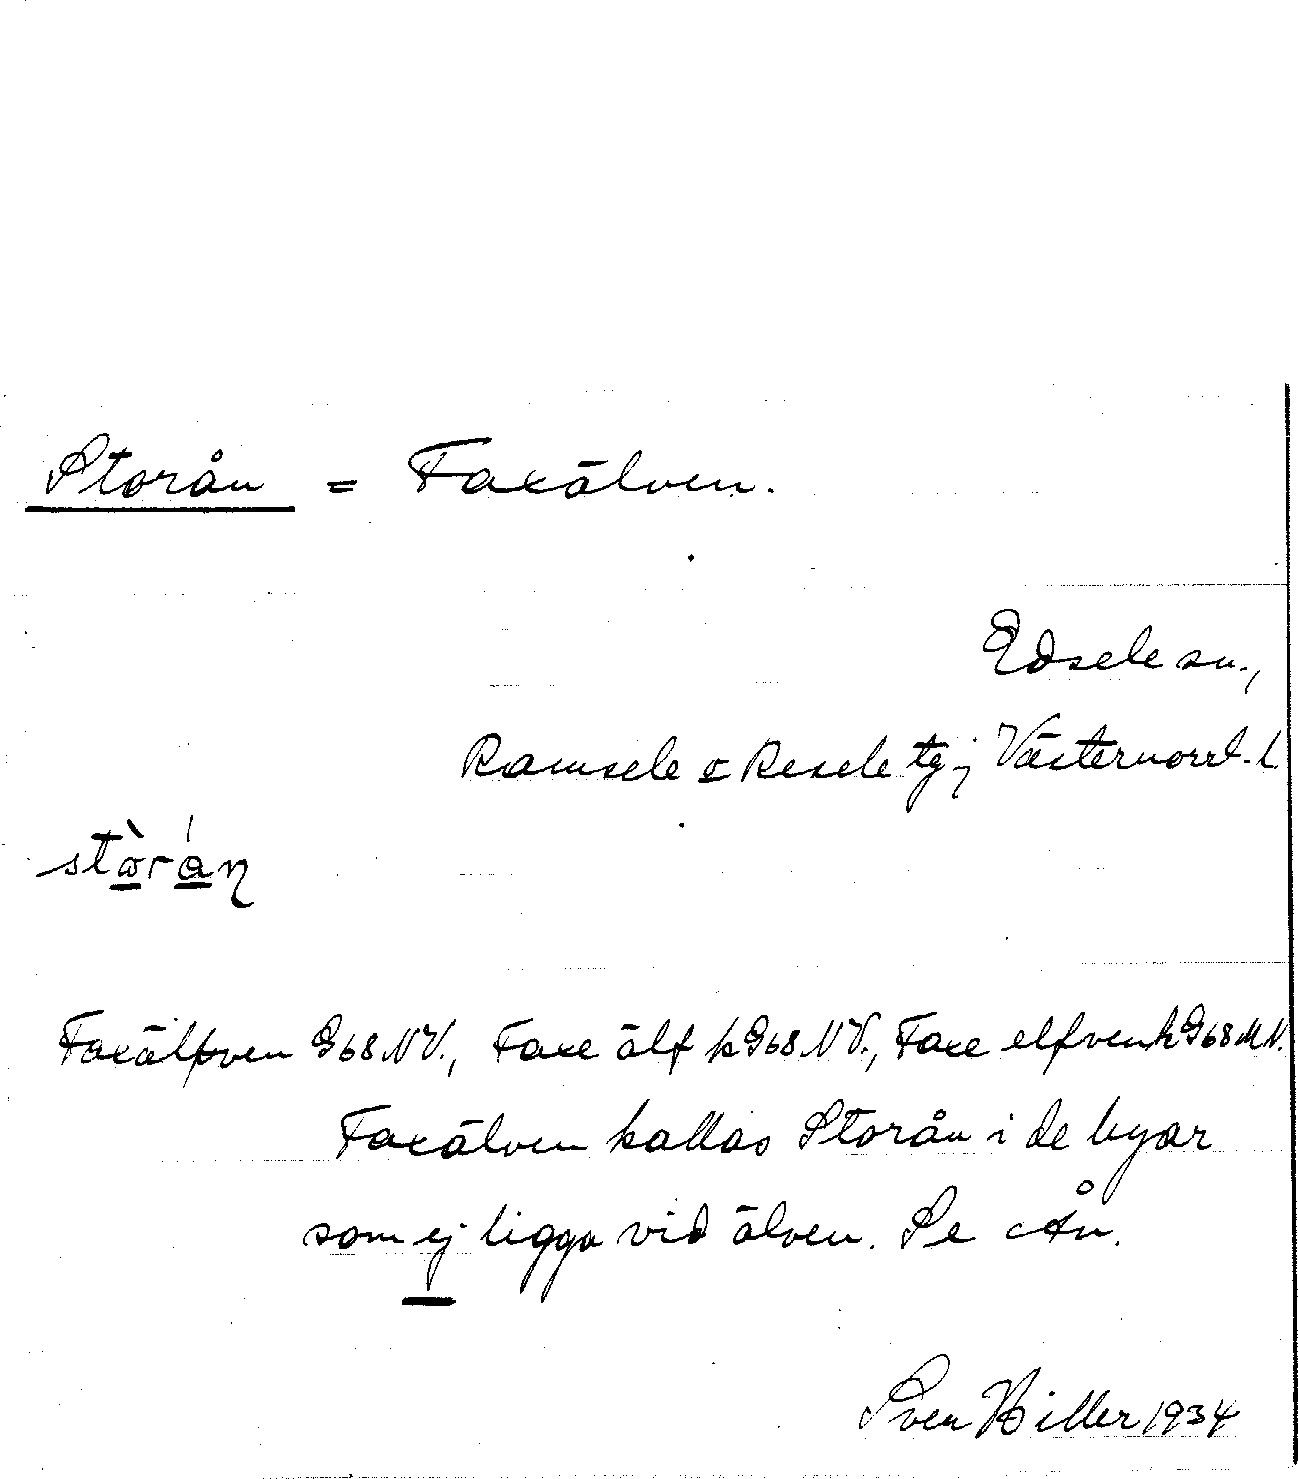 Storån = Faxälven.
Edsele sn.,
Ramsele o Resele tg; Västernorrl. l
stòrán
Faxälfven G68 NV., Faxe älf k G68 NV., Faxe elfven k G68 MN.
Faxälven kallas Storån i de byar
som ej ligga vid älven. Se Ån.
Sven Hiller 1934